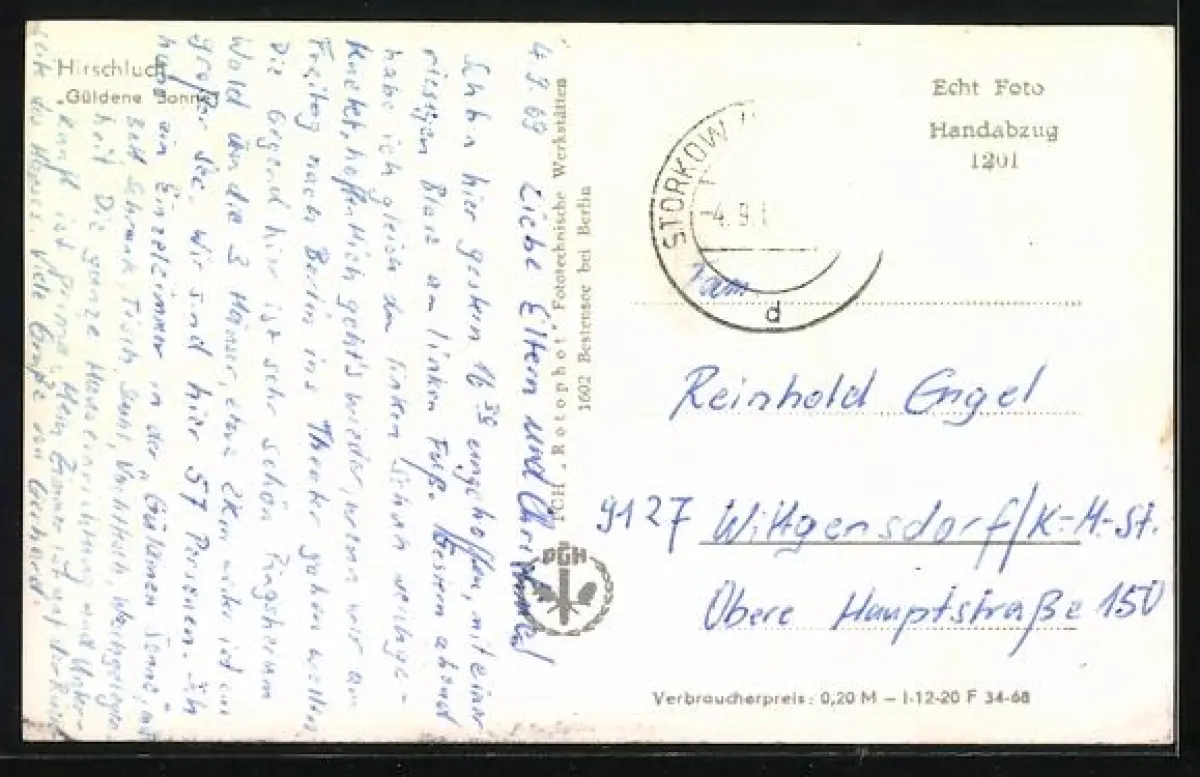 Hirschluch
„Güldene Sonne"
4.9.69 Liebe Eltern und
Schön hier gestern 16 30 eingetroffen, mit einer
riesigen Blase am linken Fuß. Gestern abend
habe ich gleich den linken
hoffentlich geht's wieder, wenn wir am
Freitag nach Berlin ins Theater gehen wollen.
Die Gegend hier ist sehr schön. Ringsherum
Wald um die 3 Häuser, etwa 2km weiter ist ein
großer See. Wir sind hier 57 Personen. Ich
habe ein Einzelzimmer in der „Güldenen Sonne", mit
Bett, Schrank, Tisch, Stuhl,
Die ganze Hauseinrichtung und Unter-
kunft ist prima. Mein Zimmer ist auf der Rück-
seite des Hauses. Viele Grüße von Gerhard.
PGH „Rotophot", Fototechnische Werkstätten
1602 Bestensee bei Berlin
PGH
Echt Foto
Handabzug
1201
STORKOW
-4.9.
d
Fam.
Reinhold Engel
9127 Wittgensdorf/K-M-St.
Obere Hauptstraße 150
Verbraucherpreis: 0,20 M – I-12-20 F 34-68